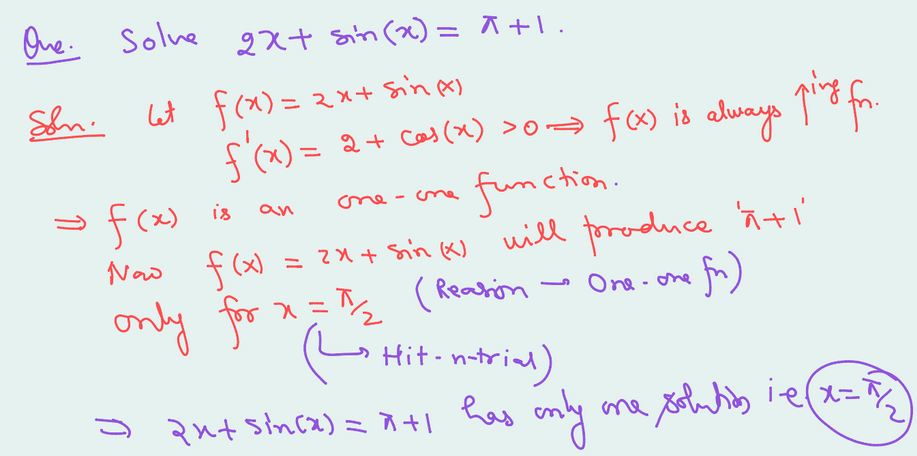 Que. Solve 2x + sin(x) = π + 1.
Soln. Let f(x) = 2x + sin(x)
f'(x) = 2 + cos(x) > 0 ⇒ f(x) is always ↑ing fn.
⇒ f(x) is an one-one function.
Now f(x) = 2x + sin(x) will produce 'π+1'
only for x = π/2 (Reason → One-one fn)
(↳ Hit-n-trial)
⇒ 2x + sin(x) = π + 1 has only one solution i.e x = π/2